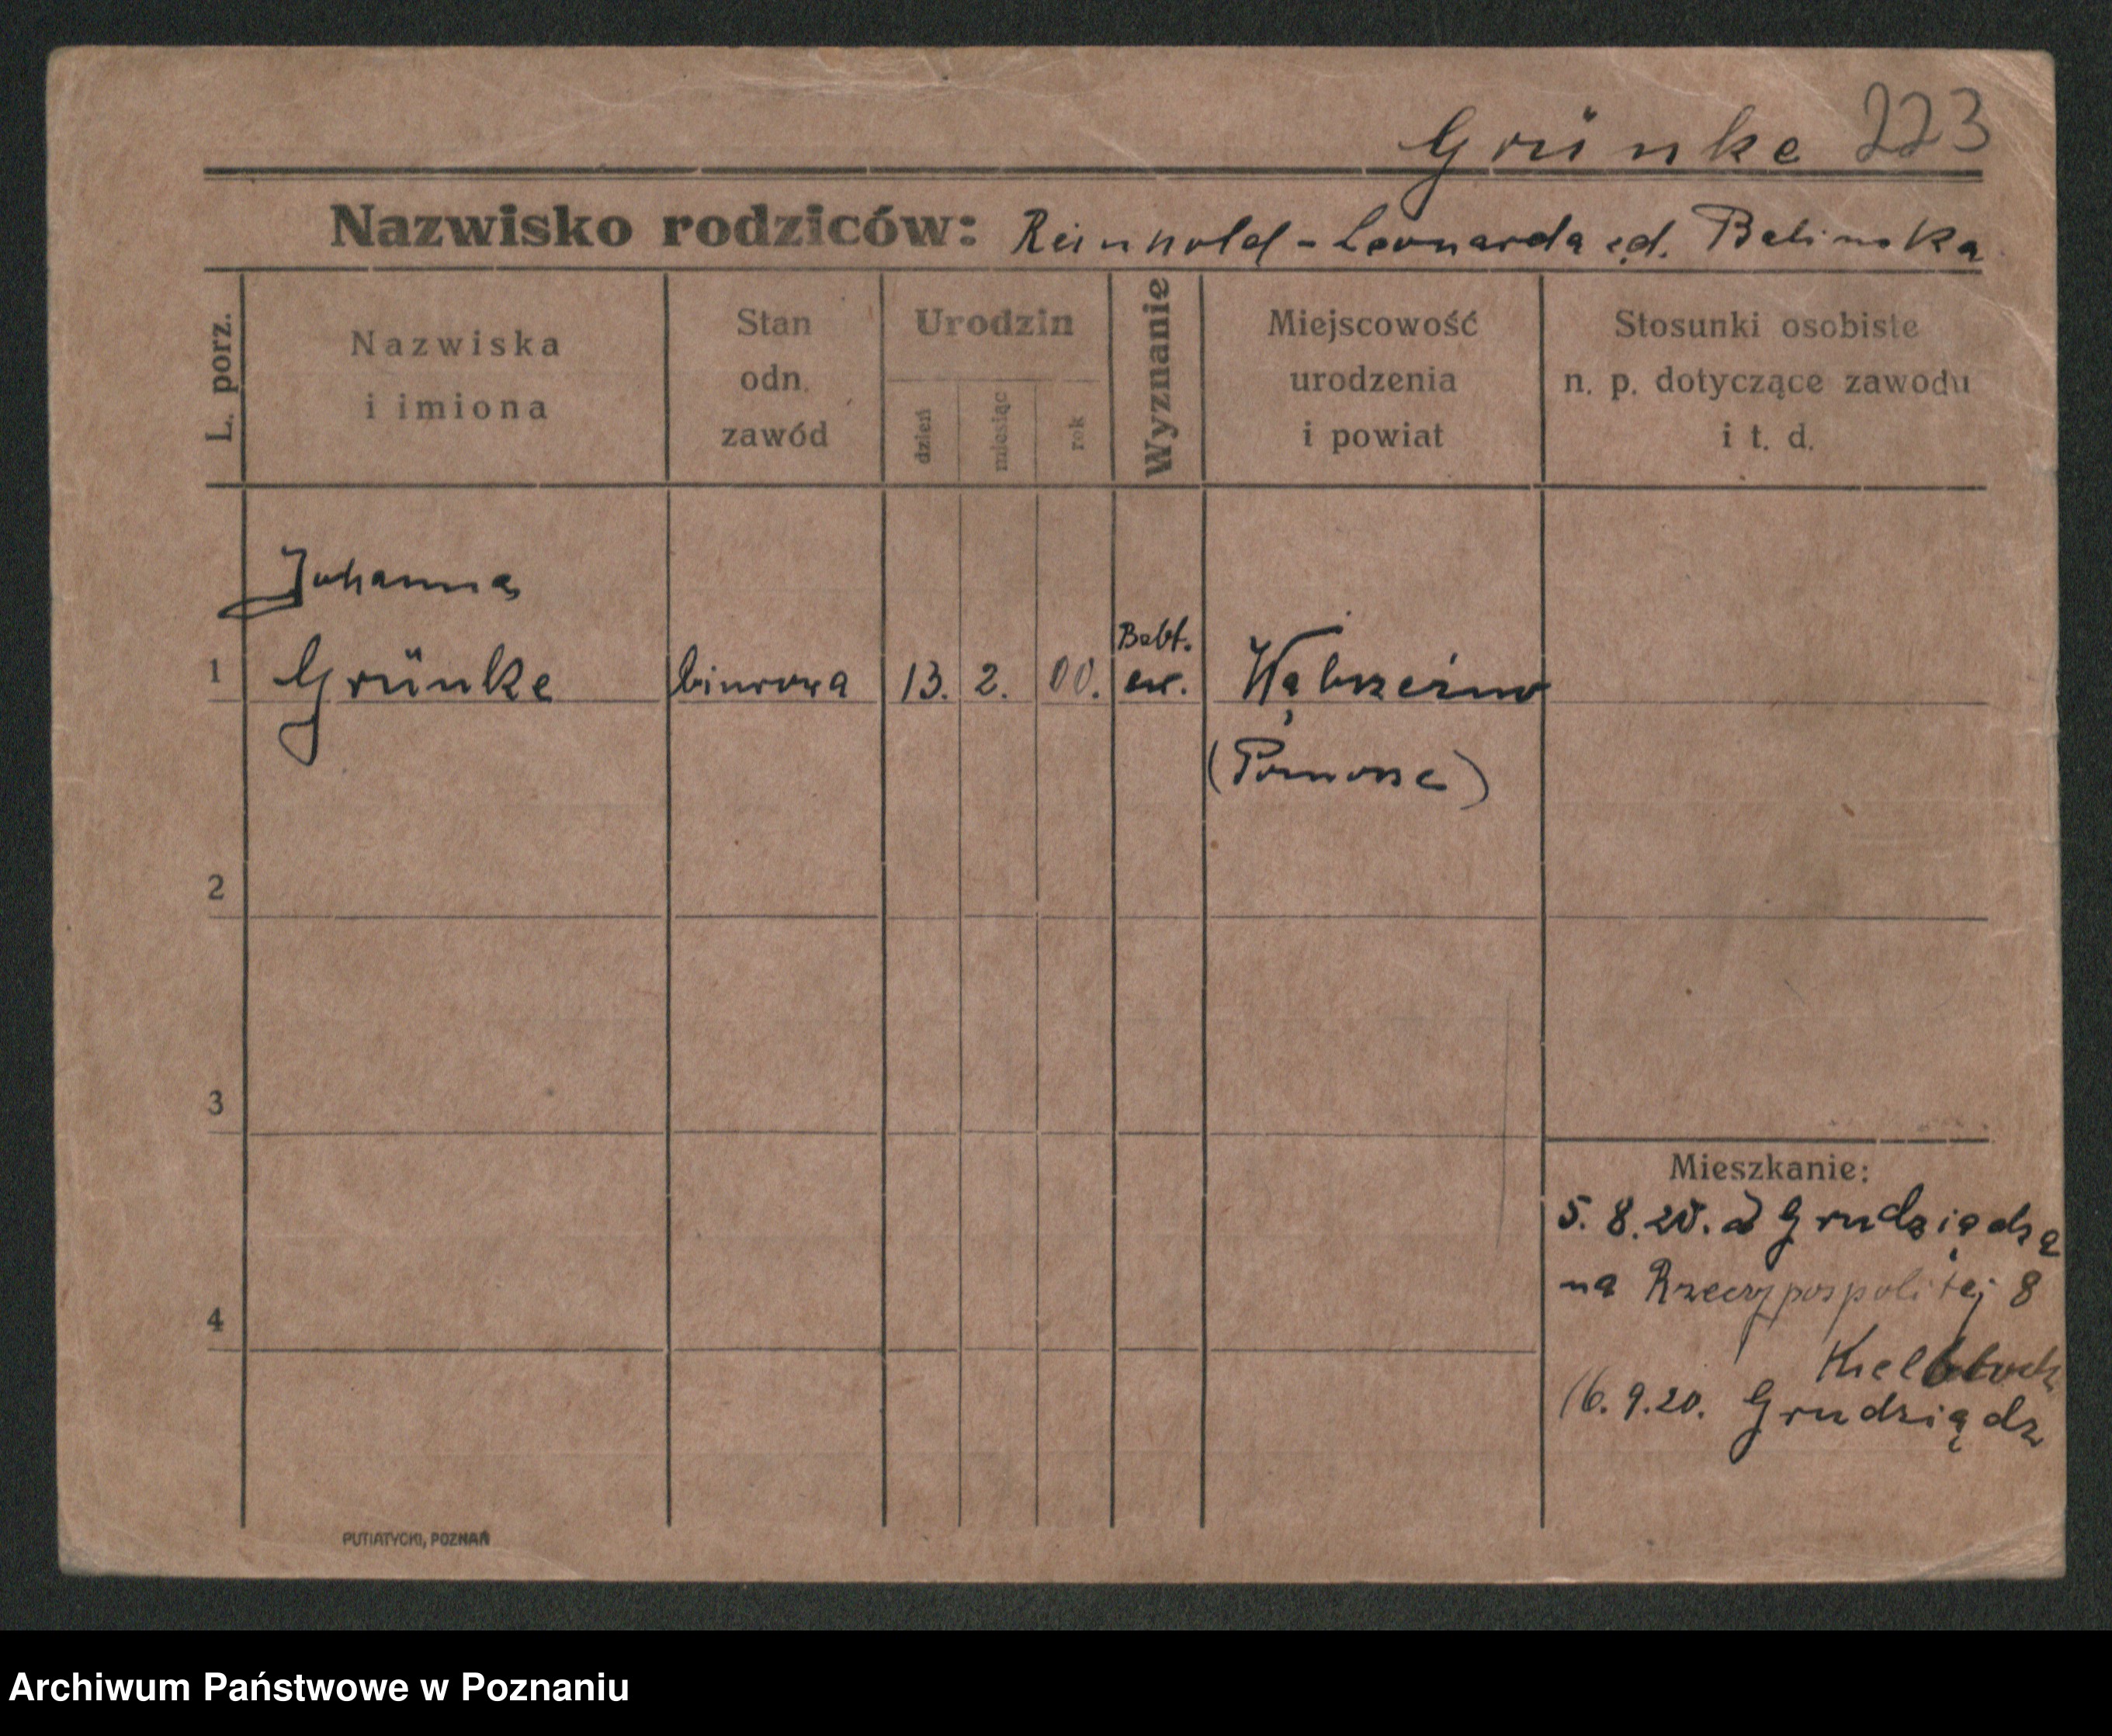 Grünke 223
Nazwisko rodziców: Reinhold - Leonarda Balinska
L. porz.
Nazwiska
i imiona
Stan
odn.
zawód
Urodzin
dzień
miesiąc
rok
Wyznanie
Miejscowość
urodzenia
i powiat
Stosunki osobiste
n. p. dotyczące zawodu
i t. d.
Johanna
Babt.
1 Grünke biurowa 13. 2. 00. ew. Wąbrzeźno
(Pomorze)
2
3
4
Mieszkanie:
5. 8. 20. z Grudziądza
na Rzeczypospolitej 8
16. 9. 20. Grudziądz
PUTIATYCKI, POZNAŃ
Archiwum Państwowe w Poznaniu